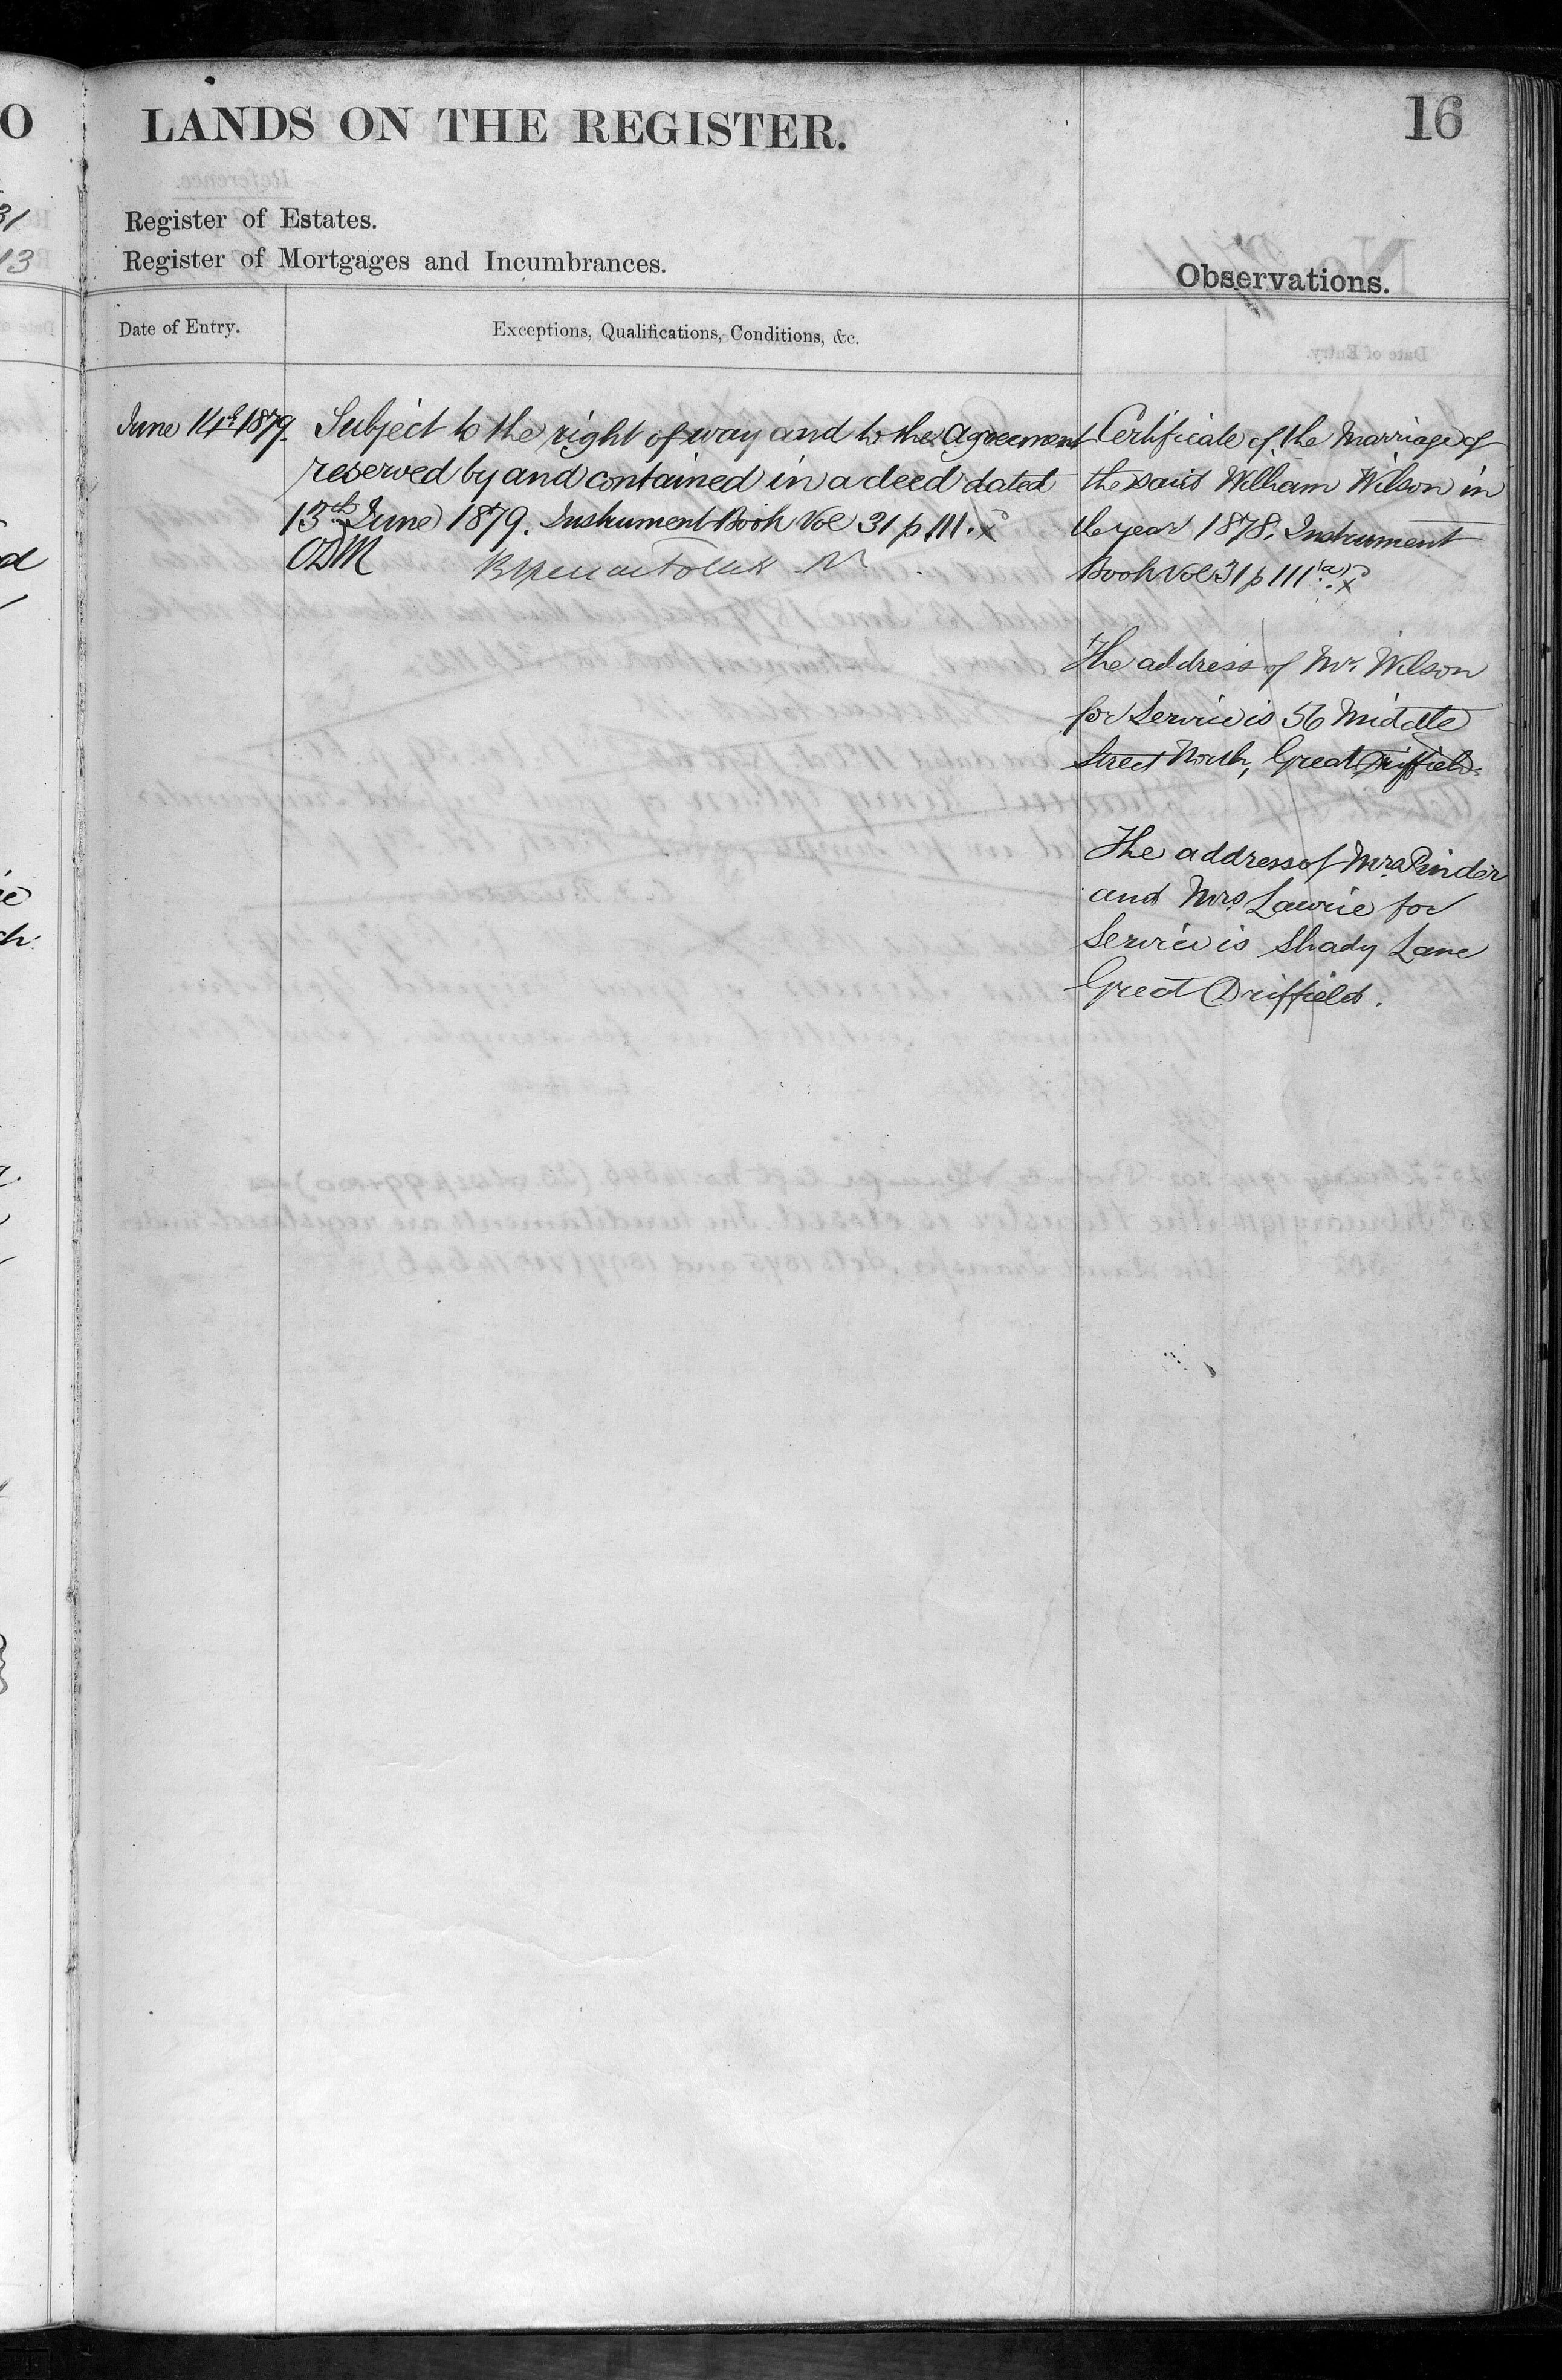 LANDS ON THE REGISTER.
16
Register of Estates.
Register of Mortgages and Incumbrances.
Observations.
Date of Entry.
Exceptions, Qualifications, Conditions, &c.
June 14th 1879.
Subject to the right of way and to the agreement
reserved by and contained in a deed dated
13th June 1879. Instrument Book Vol 31 p 111. x
Certificate of the Marriage of
the said William Wilson in
the year 1878. Instrument
Book Vol 31 p 111 (a) x
The address of Mr. Wilson
for Service is 56 Middle
Street North, Great Driffield.
The address of Mrs Pinder
and Mrs. Lawrie for
Service is Shady Lane
Great Driffield.